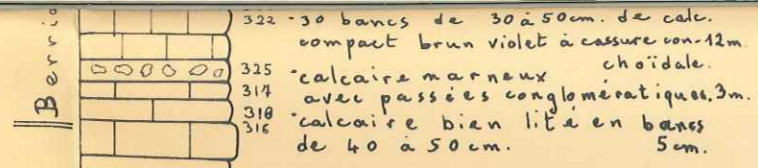 Berria
322 - 30 bancs de 30 à 50cm. de calc.
compact brun violet à cassure con- 12m.
choïdale.
325 - calcaire marneux
317 avec passées conglomératiques. 3m.
318 - calcaire bien lité en bancs
316
de 40 à 50cm. 5cm.